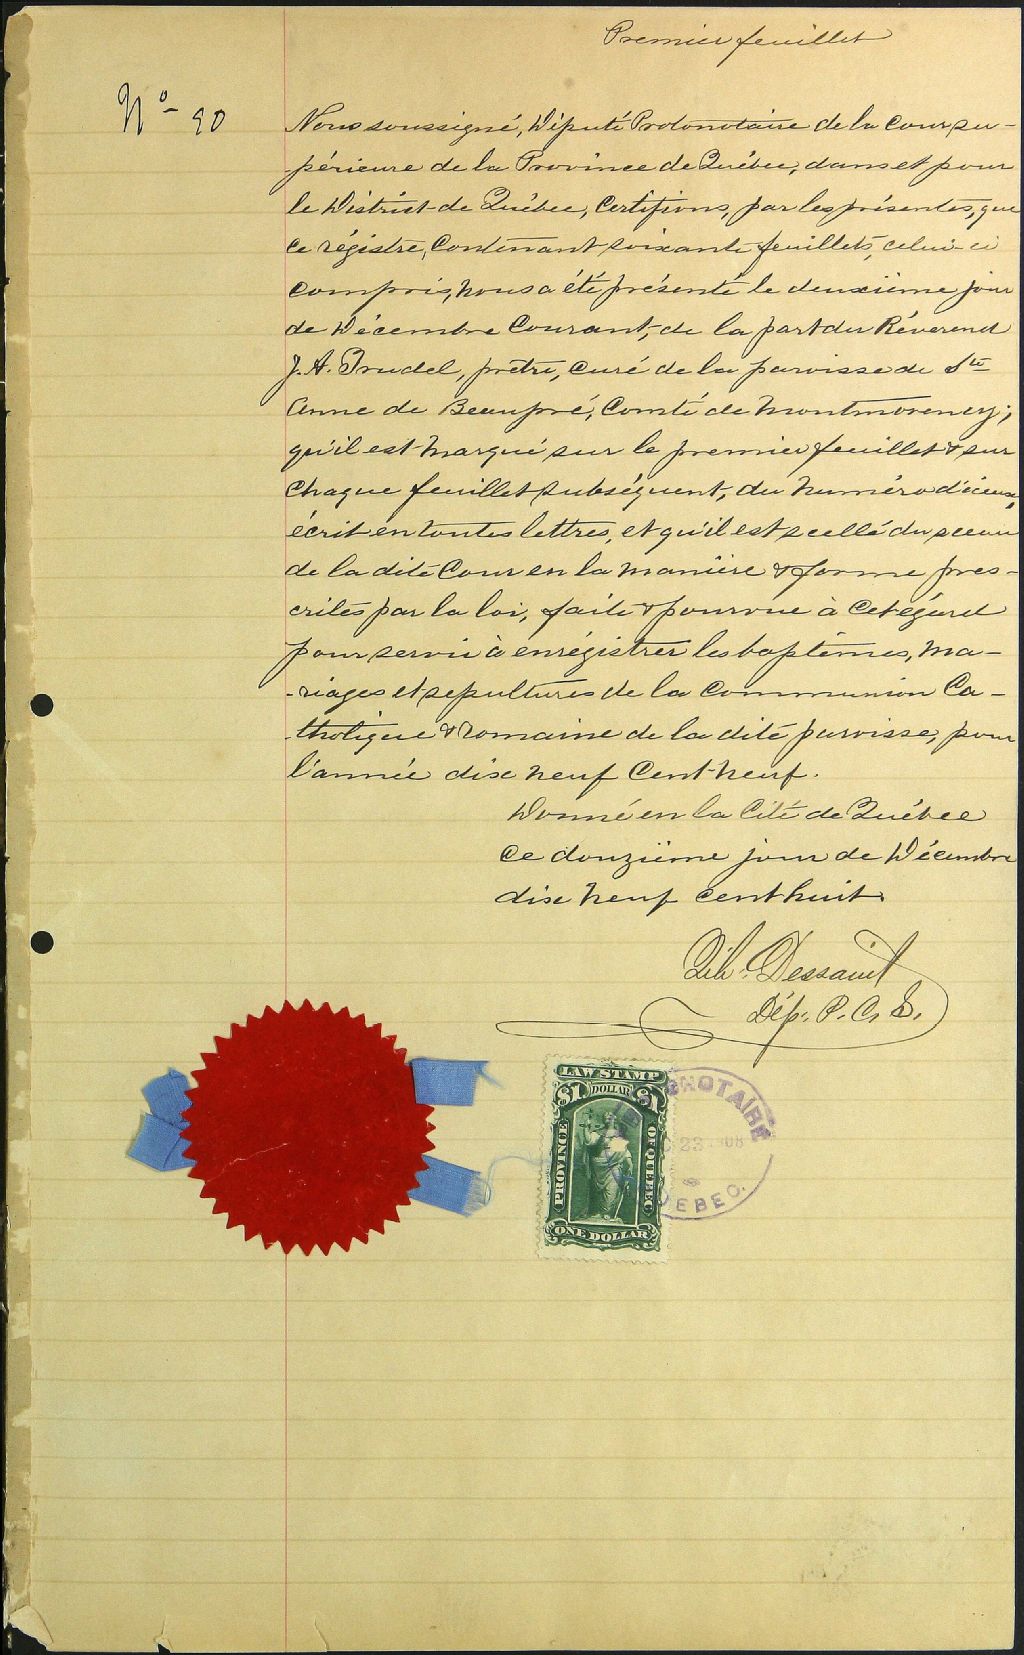 Premier feuillet
No 90
Nous soussigné, Député Protonotaire de la Cour su-
périeure de la Province de Québec, dans et pour
le District de Québec, Certifions, par les présentes, que
ce régistre, Contenant soixante feuillets, celui-ci
compris, nous a été présenté le deuxième jour
de Décembre Courant, de la part du Révérend
J. A. Trudel, prêtre, curé de la paroisse de Ste
Anne de Beaupré, Comté de Montmorency;
qu'il est marqué sur le premier feuillet & sur
chaque feuillet subséquent, du numéro d'iceux,
écrit en toutes lettres, et qu'il est scellé du sceau
de la dite Cour en la manière & forme pres-
crites par la loi, faite & pourvue à cet égard
pour servir à enrégistrer les baptêmes, ma-
-riages et sepultures de la Communion Ca-
tholique & Romaine de la dite paroisse, pour
l'année dix neuf Cent neuf.
Donné en la Cité de Québec
Ce douzième jour de Décembre
dix neuf cent huit
Dessault
Dép. P. C. S.
LAW STAMP
$1 DOLLAR $1
PROVINCE OF QUEBEC
ONE DOLLAR
NOTAIRE
23 1908
QUEBEC.